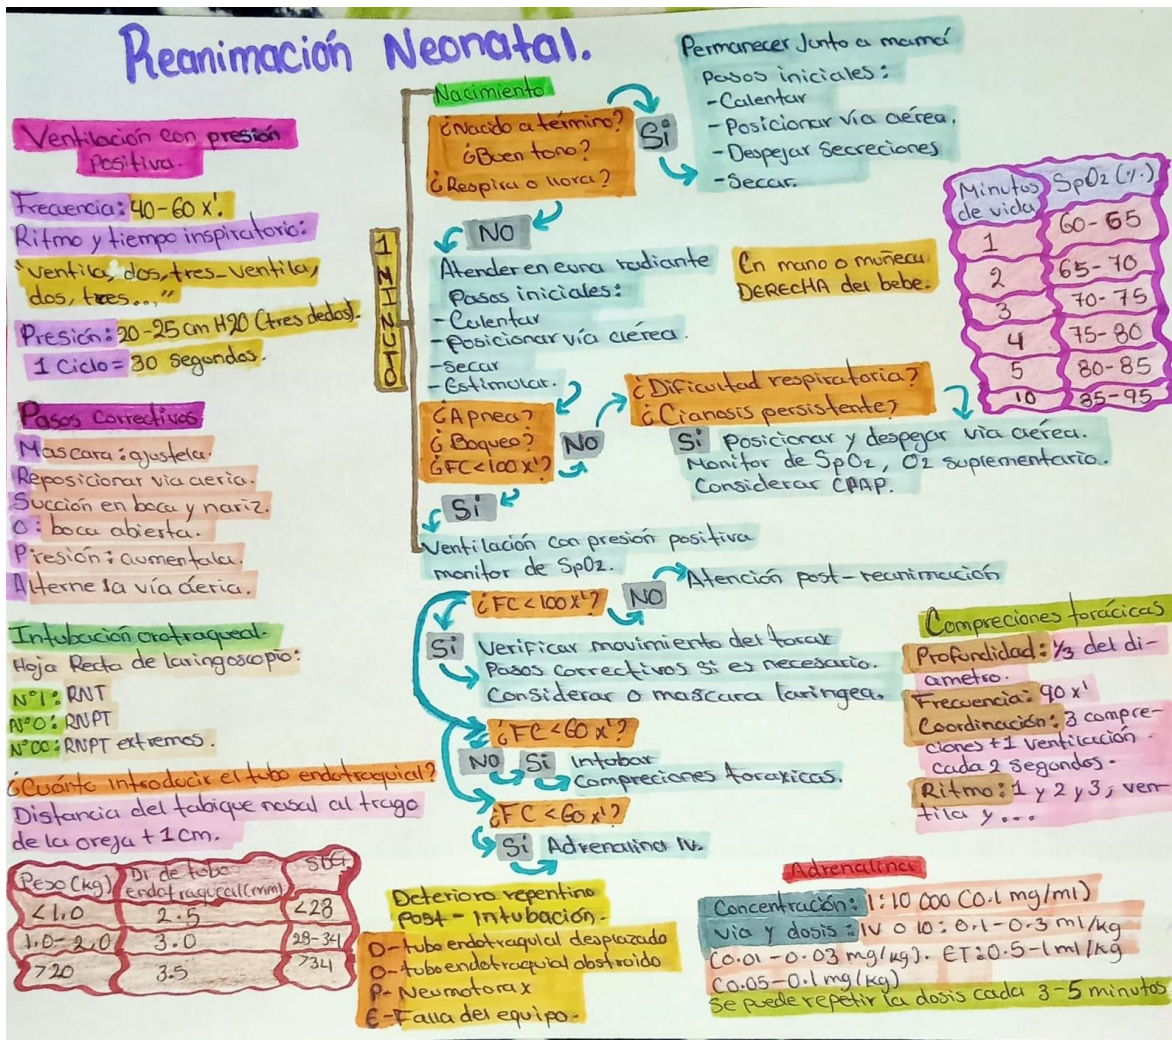 Reanimación Neonatal.
Ventilación con presión
Positiva.
Frecuencia: 40-60 x'.
Ritmo y tiempo inspiratorio:
"ventila, dos, tres-ventila,
dos, tres..."
Presión: 20-25 cm H2O (tres dedos).
1 Ciclo = 30 segundos.
Pasos Correctivos
Mascara: ajustela.
Reposicionar via aeria.
Succión en boca y nariz.
O: boca abierta.
Presión: aumentala.
Alterne la vía aeria.
Intubación orotraqueal.
Hoja Recta de laringoscopio:
N°1: RNT
N°0: RNPT
N°00: RNPT extremos.
¿Cuánto introducir el tubo endotraquial?
Distancia del tabique nasal al trago
de la oreja + 1 cm.
Peso (kg) DI de tubo SDG
endotraqueal (mm)
<1.0 2.5 <28
1.0-2.0 3.0 28-34
>20 3.5 >34
Nacimiento
¿Nacido a término?
¿Buen tono?
¿Respira o llora?
Si
Permanecer Junto a mamá
Pasos iniciales:
-Calentar
-Posicionar vía aérea.
-Despejar Secreciones
-Secar.
1 MINUTO
NO
Atender en cuna radiante
Pasos iniciales:
-Calentar
-Posicionar vía aérea.
-secar
-Estimular.
En mano o muñeca
DERECHA del bebe.
Minutos SpO2 (%)
de vida
1 60-65
2 65-70
3 70-75
4 75-80
5 80-85
10 85-95
¿Apnea?
¿Boqueo?
¿FC<100x'?
NO
¿Dificultad respiratoria?
¿Cianosis persistente?
Si Posicionar y despejar via aerea.
Monitor de SpO2, O2 suplementario.
Considerar CPAP.
Si
Ventilación con presión positiva
monitor de SpO2.
¿FC<100x'? NO Atención post-reanimación
Si Verificar movimiento del torax
Pasos correctivos Si es necesario.
Considerar o mascara laringea.
¿FC<60 x'?
NO Si Intubar
Compreciones toraxicas.
¿FC<60 x'?
Si Adrenalina IV.
Compreciones torácicas
Profundidad: 1/3 del di-
ametro.
Frecuencia: 90 x'
Coordinación: 3 compre-
ciones + 1 ventilación
cada 2 segundos.
Ritmo: 1 y 2 y 3, ven-
tila y...
Deterioro repentino
post-intubación.
D-tubo endotraquial desplazado
O-tubo endotraquial obstruido
P-Neumotorax
E-Falla del equipo.
Adrenalina
Concentración: 1:10 000 (0.1 mg/ml)
via y dosis: IV o IO: 0.1-0.3 ml/kg
(0.01-0.03 mg/kg). ET: 0.5-1 ml/kg
(0.05-0.1 mg/kg)
Se puede repetir la dosis cada 3-5 minutos